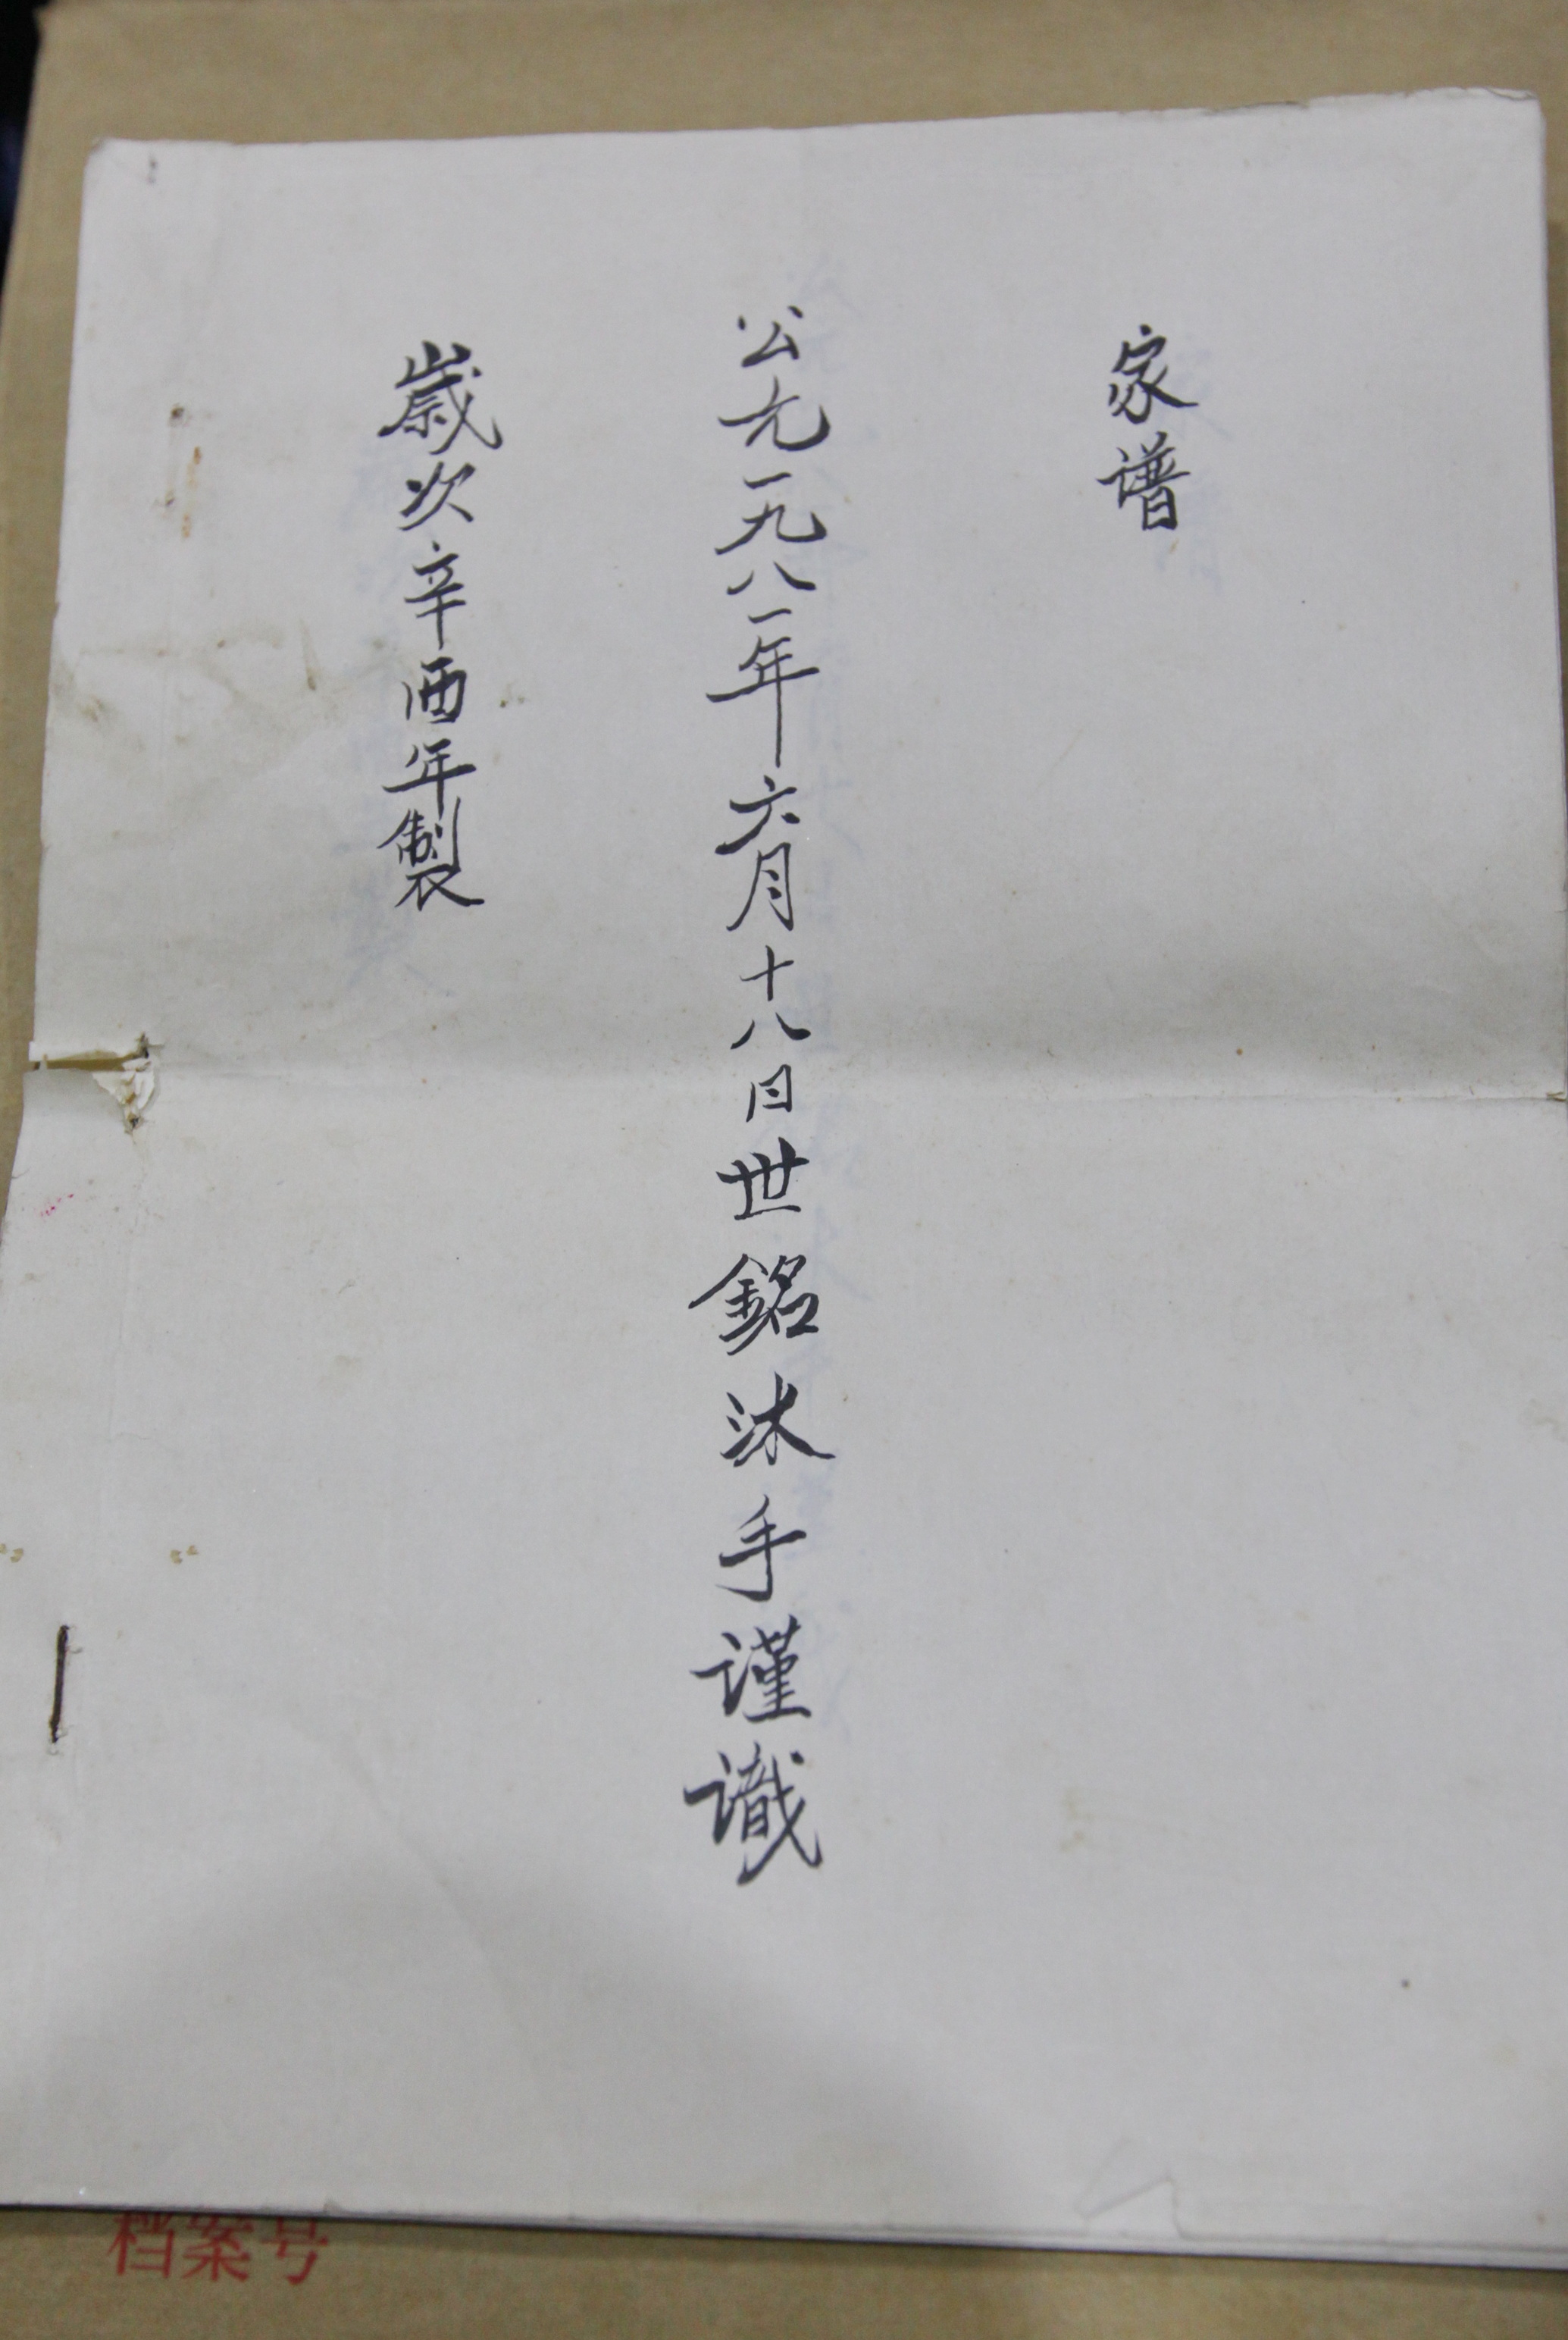 家谱
公元一九八一年六月十八日世銘沐手謹識
歲次辛酉年製
档案号